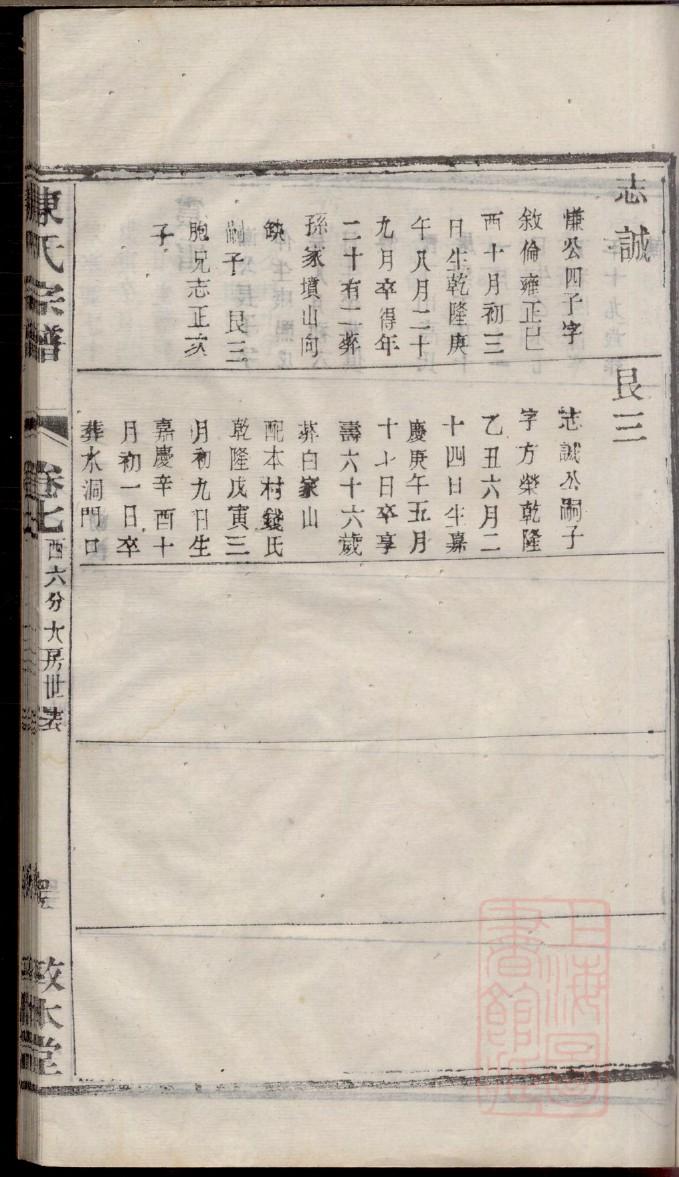 志誠
慊公四子字
敘倫雍正巳
酉十月初三
日生乾隆庚
午八月二十
九月卒得年
二十有二葬
孫家墳山向
缺
嗣子 艮三
胞兄志正次
子
艮三
志誠公嗣子
字方榮乾隆
乙丑六月二
十四日生嘉
慶庚午五月
十七日卒享
壽六十六歲
葬白家山
配本村錢氏
乾隆戊寅三
月初九日生
嘉慶辛酉十
月初一日卒
葬水洞門口
陳氏宗譜
卷七
西六分大房世表
敦本堂
上海圖書館藏